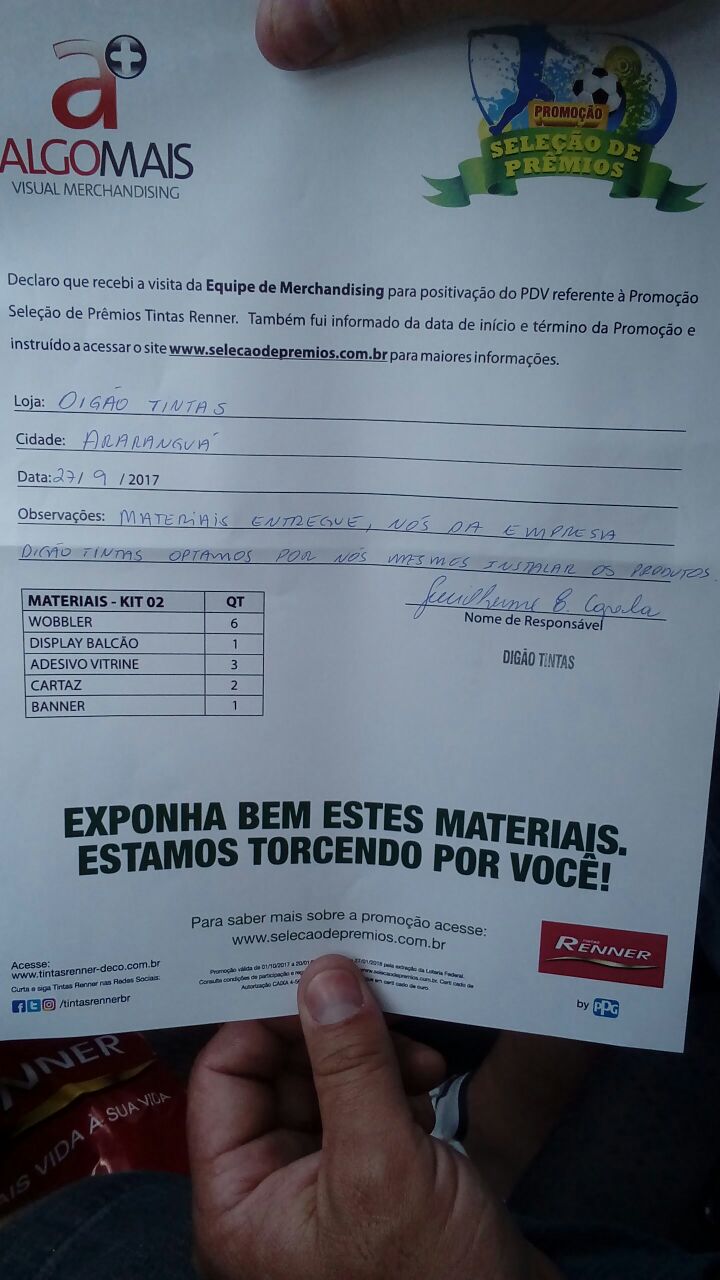 a+
ALGOMAIS
VISUAL MERCHANDISING
PROMOÇÃO
SELEÇÃO DE
PRÊMIOS
Declaro que recebi a visita da Equipe de Merchandising para positivação do PDV referente à Promoção
Seleção de Prêmios Tintas Renner. Também fui informado da data de início e término da Promoção e
instruído a acessar o site www.selecaodepremios.com.br para maiores informações.
Loja: DIGÃO TINTAS
Cidade: ARARANGUÁ
Data: 27/ 9 / 2017
Observações: MATERIAIS ENTREGUE, NÓS DA EMPRESA
DIGÃO TINTAS OPTAMOS POR NÓS MESMES INSTALAR OS PRODUTOS.
Guilherme B.
Nome de Responsável
DIGÃO TINTAS
MATERIAIS - KIT 02 QT
WOBBLER 6
DISPLAY BALCÃO 1
ADESIVO VITRINE 3
CARTAZ 2
BANNER 1
EXPONHA BEM ESTES MATERIAIS.
ESTAMOS TORCENDO POR VOCÊ!
Para saber mais sobre a promoção acesse:
www.selecaodepremios.com.br
Acesse:
www.tintasrenner-deco.com.br
Curta e siga Tintas Renner nas Redes Sociais:
/tintasrennerbr
Promoção válida de 01/10/2017 a 27/01/2018 pela extração da Loteria Federal.
Consulte condições de participação e www.selecaodepremios.com.br.
Autorização CAIXA
tintas
RENNER
by PPG
NNER
AIS VIDA À SUA VIDA